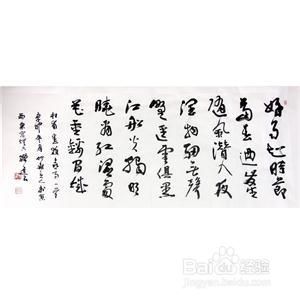 好雨知時節
當春乃發生
随風潜入夜
潤物細無聲
野逕雲俱黑
江船火獨明
曉看紅濕處
花重錦官城
杜甫春夜喜雨
Baidu 经验
jingyan.baidu.com